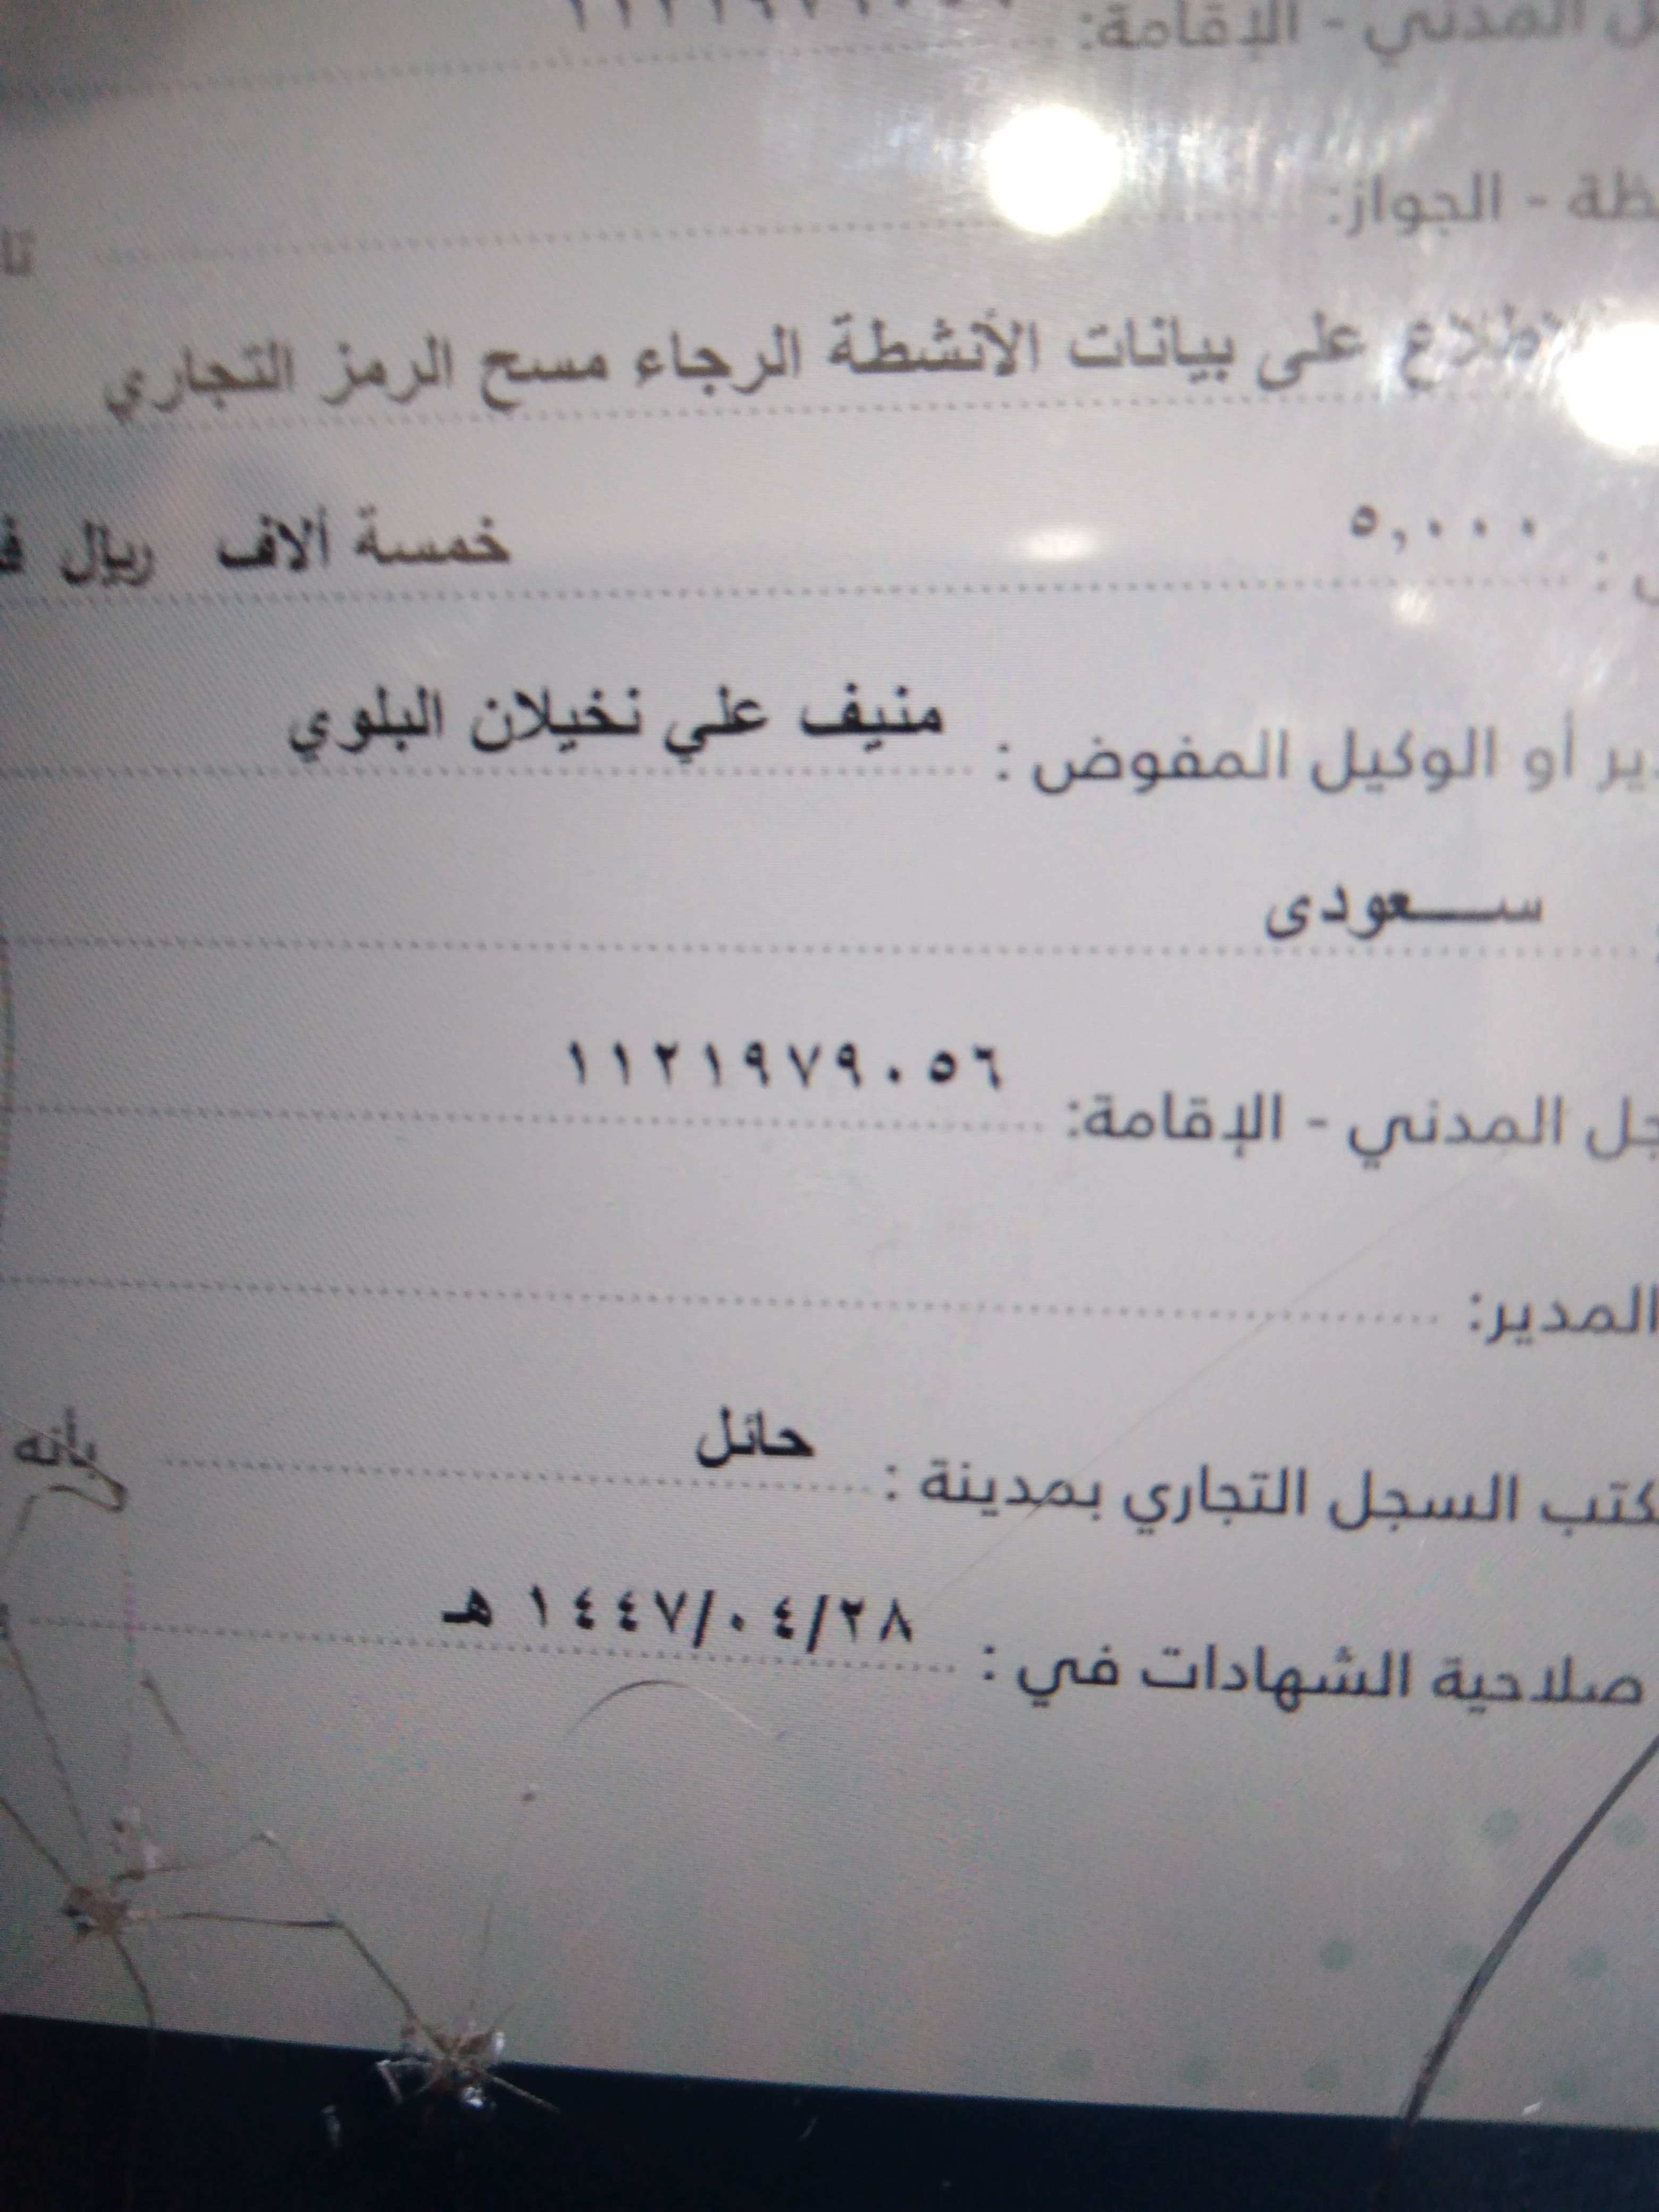 المدني - الإقامة:
الجواز:
على بيانات الأنشطة الرجاء مسح الرمز التجاري
٥,٠٠٠ خمسة ألاف ريال
أو الوكيل المفوض : منيف علي نخيلان البلوي
سعودى
المدني - الإقامة: ١١٢١٩٧٩٠٥٦
المدير:
السجل التجاري بمدينة : حائل بأنه
صلاحية الشهادات في : ١٤٤٧/٠٤/٢٨ هـ